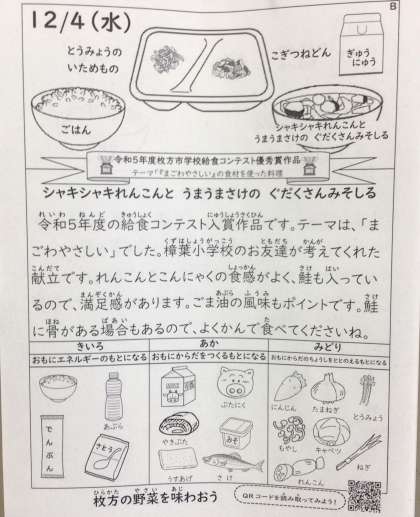 B
12/4(水)
とうみょうの
いためもの
こぎつねどん
ぎゅう
にゅう
ごはん
シャキシャキれんこんと
うまうまさけの ぐだくさんみそしる
令和5年度枚方市学校給食コンテスト優秀賞作品
テーマ「『まごわやさしい』の食材を使った料理
シャキシャキれんこんと うまうまさけの ぐだくさんみそしる
れいわ ねんど きゅうしょく にゅうしょうさくひん
令和5年度の給食コンテスト入賞作品です。テーマは、「ま
くずはしょうがっこう ともだち かんが
ごわやさしい」でした。樟葉小学校のお友達が考えてくれた
こんだて しょっかん さけ はい
献立です。れんこんとこんにゃくの食感がよく、鮭も入ってい
まんぞくかん あぶら ふうみ さけ
るので、満足感があります。ごま油の風味もポイントです。鮭
ほね ばあい た
に骨がある場合もあるので、よくかんで食べてくださいね。
きいろ あか みどり
おもにエネルギーのもとになる おもにからだをつくるもとになる おもにからだのちょうしをととのえるもとになる
あぶら
ぶたにく
にんじん
たまねぎ
とうみょう
でんぷん
さとう
やきぶた
みそ
もやし
キャベツ
うすあげ
さけ
れんこん
ねぎ
ひらかた やさい あじ
枚方の野菜を味わおう
QRコードを読み取ってみよう!